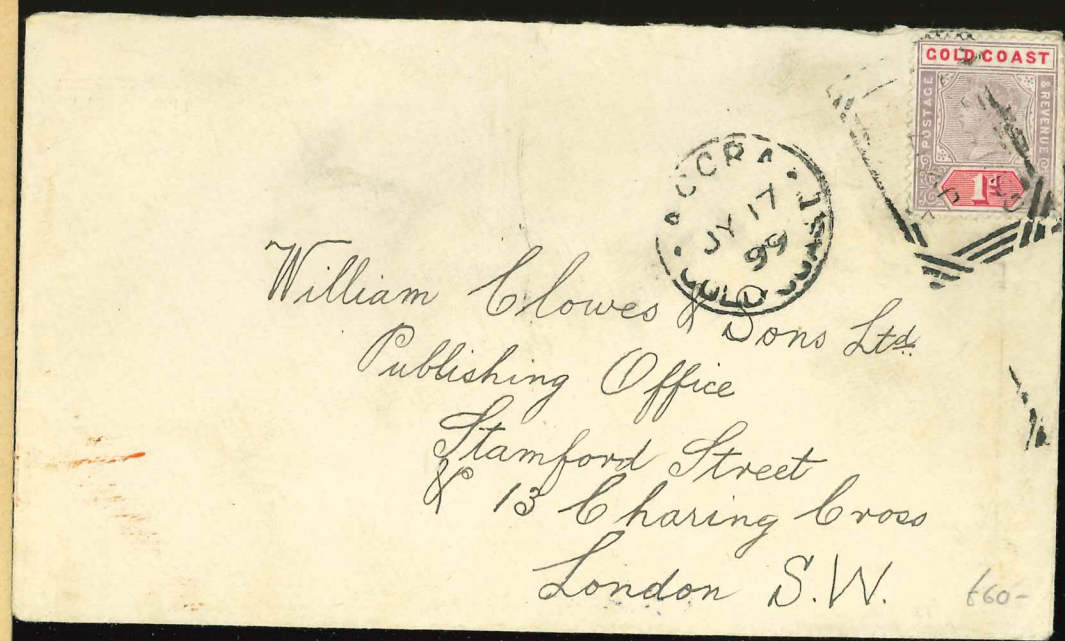 GOLD COAST
POSTAGE & REVENUE
1d
ACCRA
JY 17
99
GOLD COAST
William Clowes & Sons Ltd.
Publishing Office
Stamford Street
& 13 Charing Cross
London S.W.
£60-